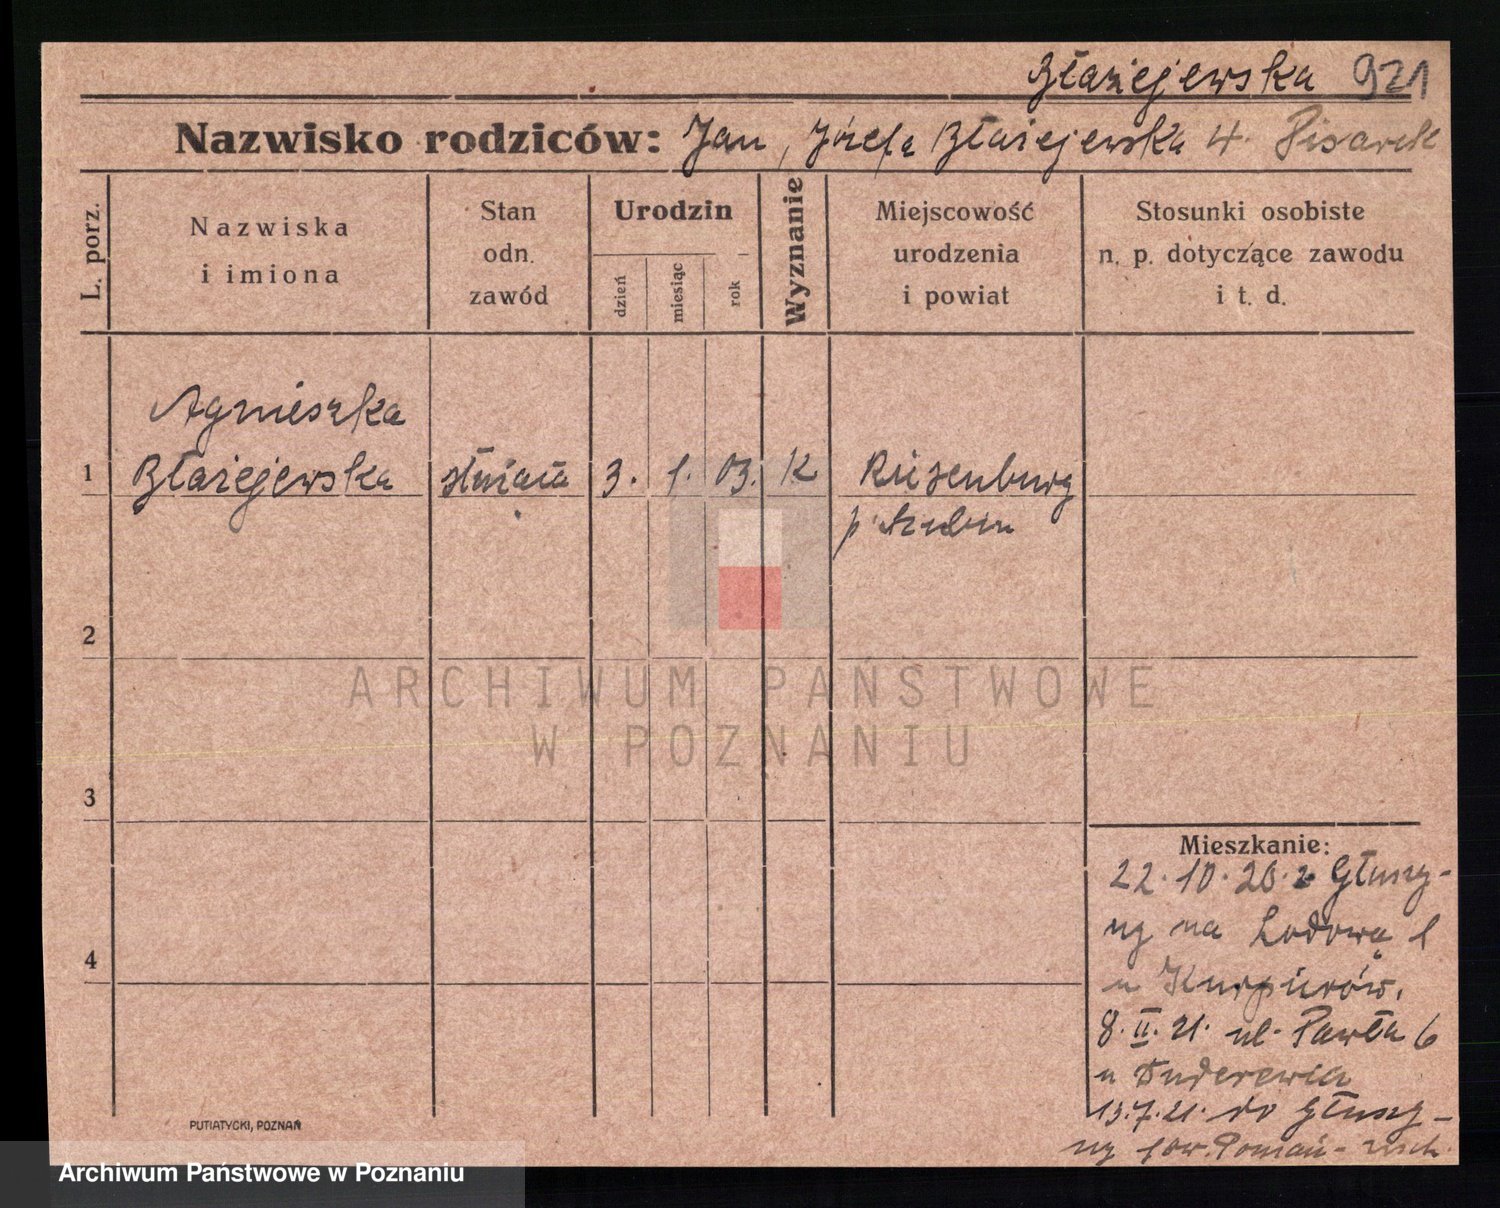 Błażejewska 921
Nazwisko rodziców: Jan, Józefa Błażejewska
L. porz.
Nazwiska
i imiona
Stan
odn.
zawód
Urodzin
dzień
miesiąc
rok
Wyznanie
Miejscowość
urodzenia
i powiat
Stosunki osobiste
n. p. dotyczące zawodu
i t. d.
Agnieszka
1 Błażejewska służąca 3. 1. 03. K Riesenburg
p. Szubin
2
3
4
ARCHIWUM PAŃSTWOWE
W POZNANIU
Mieszkanie:
22.10.20. z Głuszy-
ny na Lodową 1
u
8.II.21. ul. Pawła 6
u
13.7.21. do Głuszy-
ny pow. Poznań-
PUTIATYCKI, POZNAŃ
Archiwum Państwowe w Poznaniu